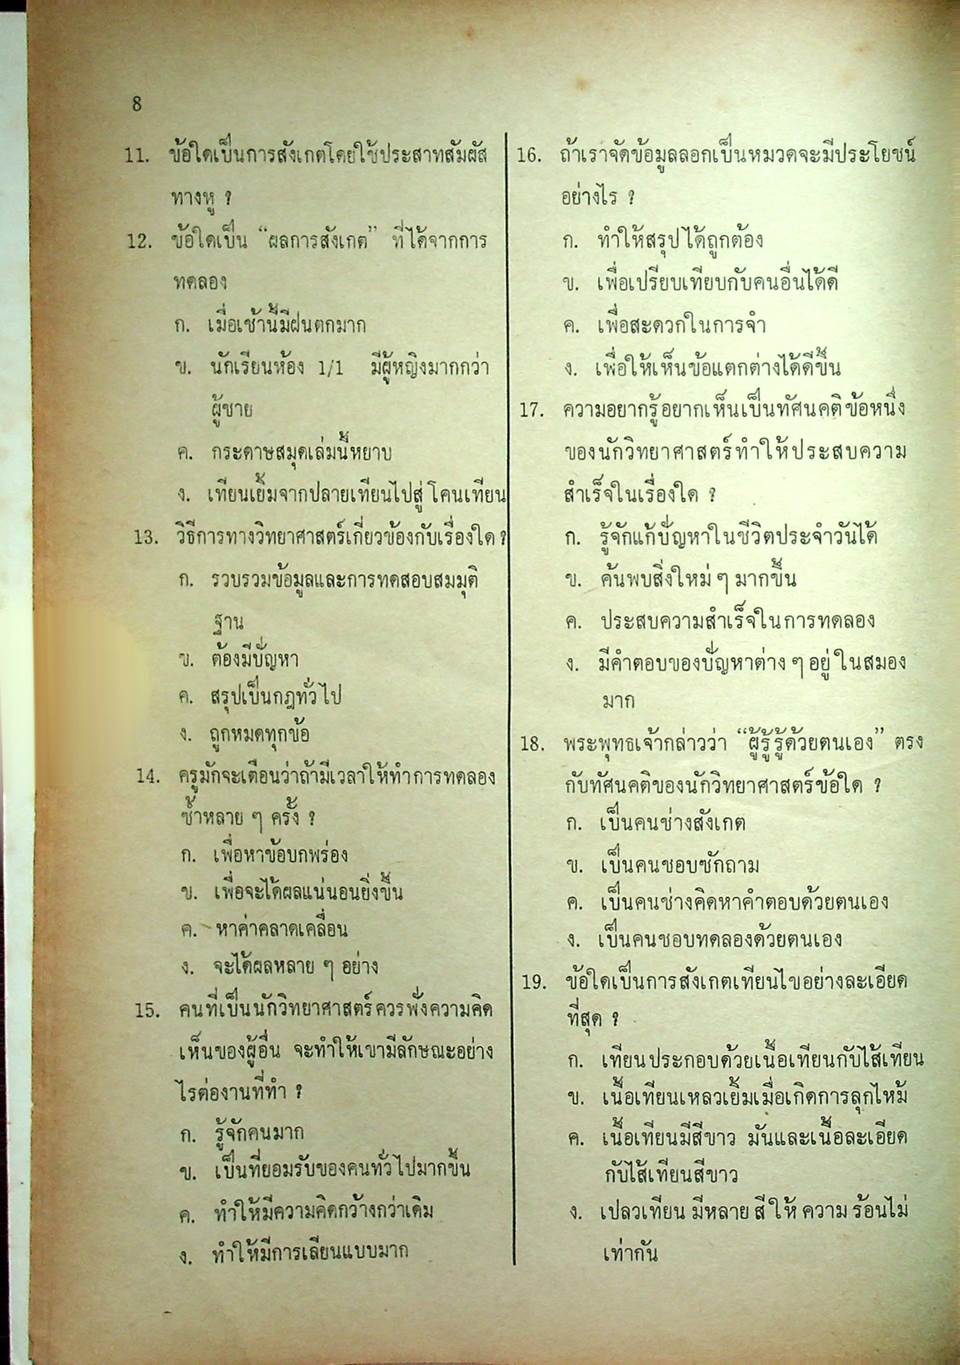 8
11. ข้อใดเป็นการสังเกตโดยใช้ประสาทสัมผัส
ทางหู ?
12. ข้อใดเป็น “ผลการสังเกต” ที่ได้จากการ
ทดลอง
ก. เมื่อเช้านี้มีฝนตกมาก
ข. นักเรียนห้อง 1/1 มีผู้หญิงมากกว่า
ผู้ชาย
ค. กระดาษสมุดเล่มนี้หยาบ
ง. เทียนเยิ้มจากปลายเทียนไปสู่โคนเทียน
13. วิธีการทางวิทยาศาสตร์เกี่ยวข้องกับเรื่องใด ?
ก. รวบรวมข้อมูลและการทดสอบสมมุติ
ฐาน
ข. ต้องมีปัญหา
ค. สรุปเป็นกฎทั่วไป
ง. ถูกหมดทุกข้อ
14. ครูมักจะเตือนว่าถ้ามีเวลาให้ทำการทดลอง
ซ้ำหลาย ๆ ครั้ง ?
ก. เพื่อหาข้อบกพร่อง
ข. เพื่อจะได้ผลแน่นอนยิ่งขึ้น
ค. หาค่าคลาดเคลื่อน
ง. จะได้ผลหลาย ๆ อย่าง
15. คนที่เป็นนักวิทยาศาสตร์ควรฟังความคิด
เห็นของผู้อื่น จะทำให้เขามีลักษณะอย่าง
ไรต่องานที่ทำ ?
ก. รู้จักคนมาก
ข. เป็นที่ยอมรับของคนทั่วไปมากขึ้น
ค. ทำให้มีความคิดกว้างกว่าเดิม
ง. ทำให้มีการเลียนแบบมาก
16. ถ้าเราจัดข้อมูลลอกเป็นหมวดจะมีประโยชน์
อย่างไร ?
ก. ทำให้สรุปได้ถูกต้อง
ข. เพื่อเปรียบเทียบกับคนอื่นได้ดี
ค. เพื่อสะดวกในการจำ
ง. เพื่อให้เห็นข้อแตกต่างได้ดีขึ้น
17. ความอยากรู้อยากเห็นเป็นทัศนคติข้อหนึ่ง
ของนักวิทยาศาสตร์ทำให้ประสบความ
สำเร็จในเรื่องใด ?
ก. รู้จักแก้ปัญหาในชีวิตประจำวันได้
ข. ค้นพบสิ่งใหม่ ๆ มากขึ้น
ค. ประสบความสำเร็จในการทดลอง
ง. มีคำตอบของปัญหาต่าง ๆ อยู่ในสมอง
มาก
18. พระพุทธเจ้ากล่าวว่า “ผู้รู้รู้ด้วยตนเอง” ตรง
กับทัศนคติของนักวิทยาศาสตร์ข้อใด ?
ก. เป็นคนช่างสังเกต
ข. เป็นคนชอบซักถาม
ค. เป็นคนช่างคิดหาคำตอบด้วยตนเอง
ง. เป็นคนชอบทดลองด้วยตนเอง
19. ข้อใดเป็นการสังเกตเทียนไขอย่างละเอียด
ที่สุด ?
ก. เทียนประกอบด้วยเนื้อเทียนกับไส้เทียน
ข. เนื้อเทียนเหลวเยิ้มเมื่อเกิดการลุกไหม้
ค. เนื้อเทียนมีสีขาว มันและเนื้อละเอียด
กับไส้เทียนสีขาว
ง. เปลวเทียน มีหลาย สี ให้ ความ ร้อนไม่
เท่ากัน